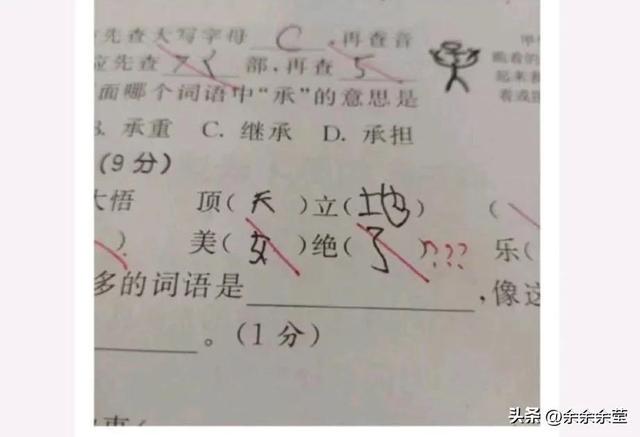 先查大写字母 C ,再查音
应先查 部,再查 5
面哪个词语中“承”的意思是
B. 承重 C. 继承 D. 承担
(9分)
大悟 顶(天)立(地) (
) 美(女)绝(了) ??? 乐(
多的词语是 ,像这
。(1分)
甲骨
瞧着的
起来着
着或
头条 @余余余莹